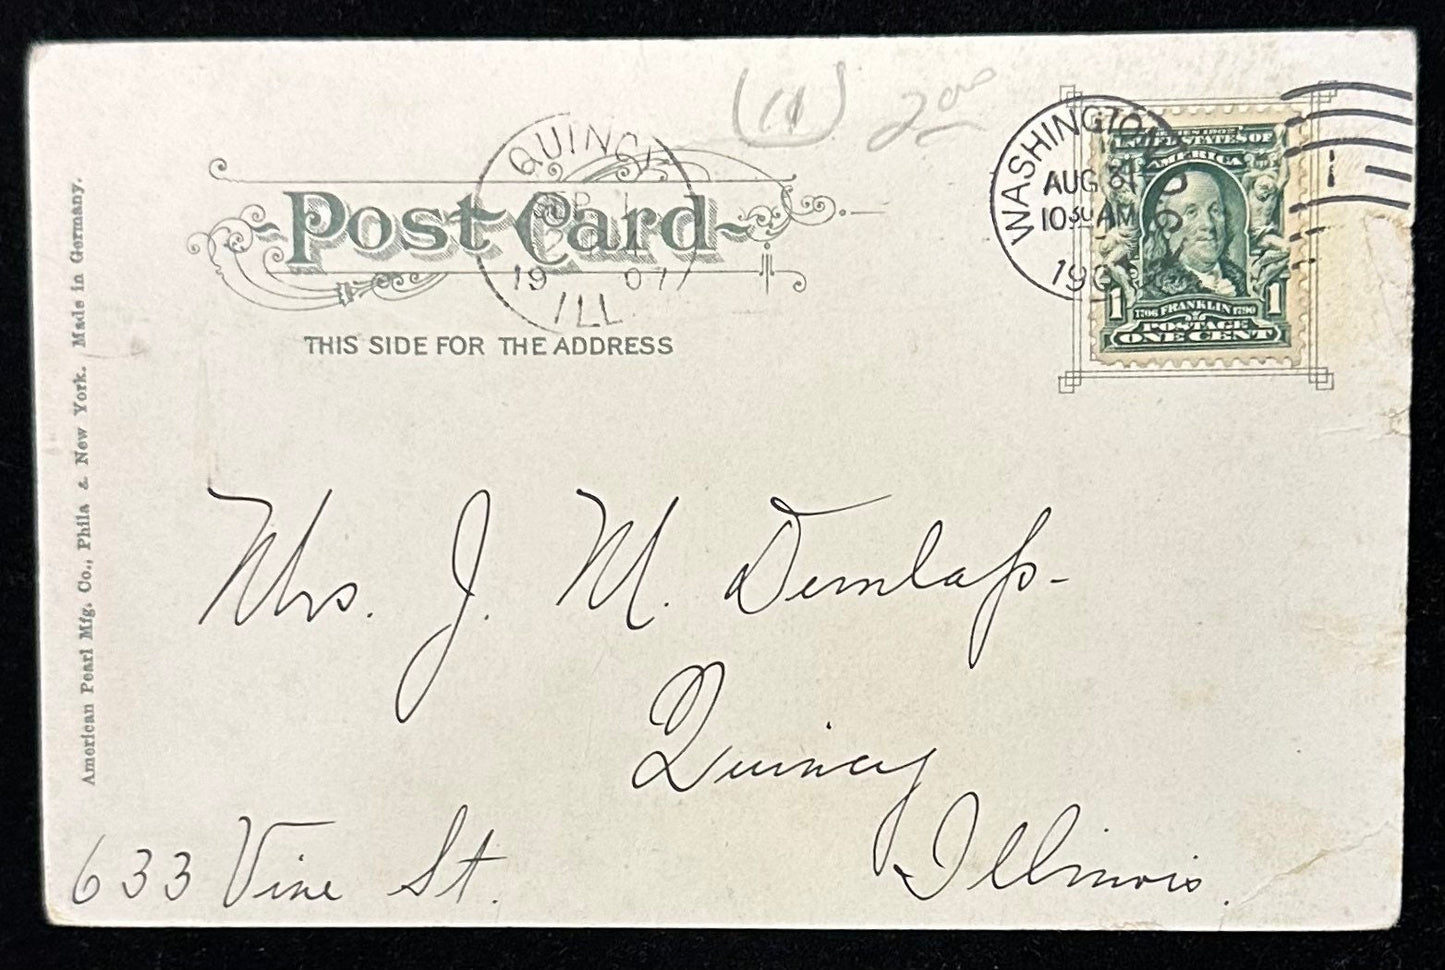 (11) 2.00
QUINCY
SEP 1
19 07
ILL.
Post Card
THIS SIDE FOR THE ADDRESS
WASHINGTON, D
AUG 31
10 30 AM
190
1
SERIES 1902
UNITED STATES OF
AMERICA
1706 FRANKLIN 1790
POSTAGE
1 ONE CENT 1
American Pearl Mfg. Co., Phila & New York. Made in Germany.
Mrs. J. M. Dunlap-
Quincy
Illinois.
633 Vine St.